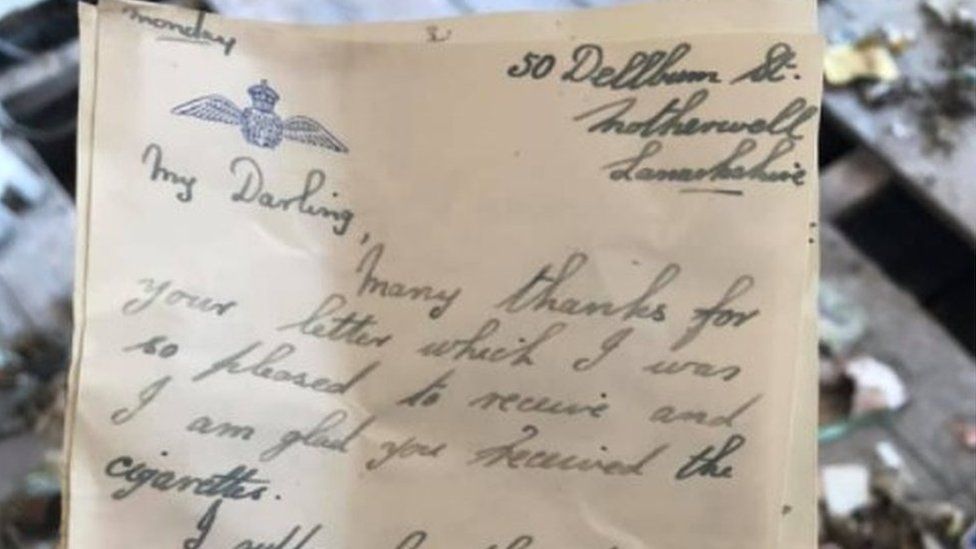 Monday
50 Dellburn St.
Motherwell
Lanarkshire
My Darling,
Many thanks for
your letter which I was
so pleased to receive and
I am glad you received the
cigarettes.
I